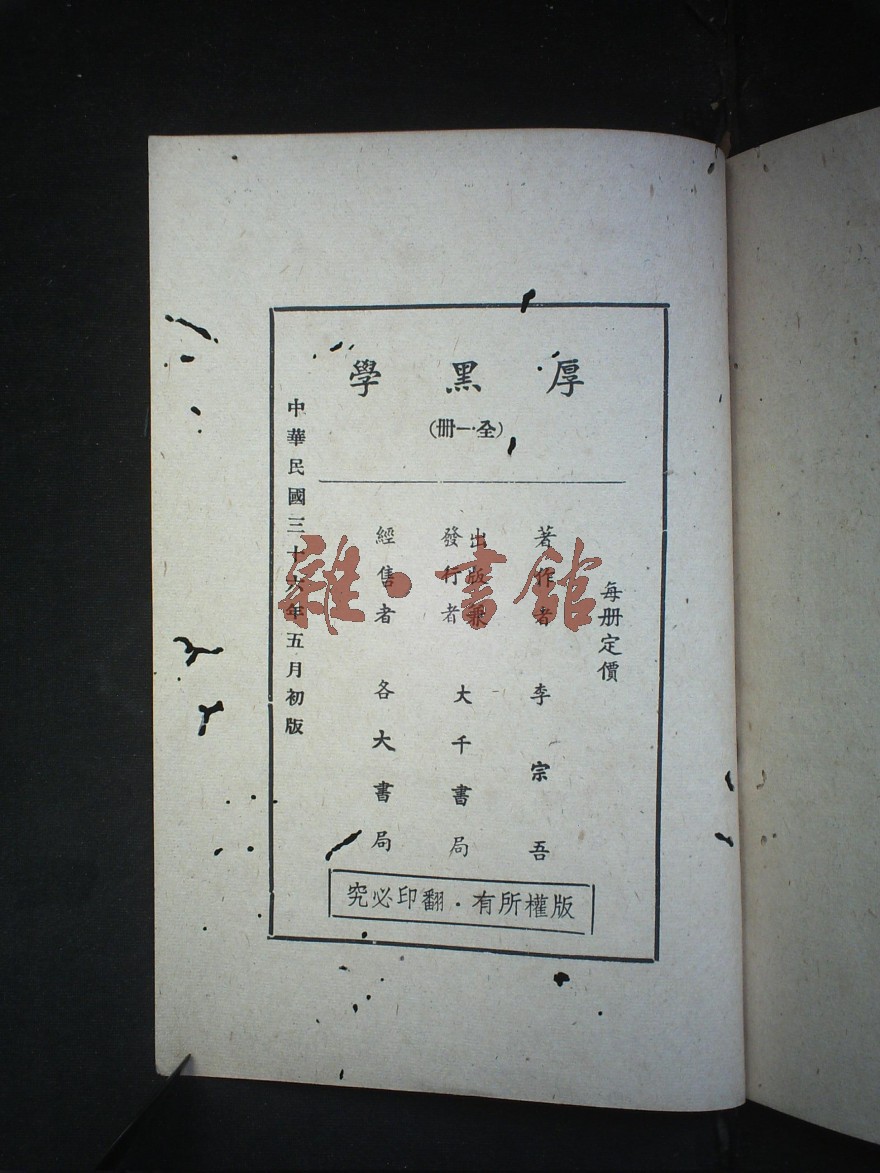 厚黑學
(全一册)
每册定價
著作者 李宗吾
出版兼
發行者 大千書局
經售者 各大書局
中華民國三十六年五月初版
版權所有·翻印必究
雜·書館